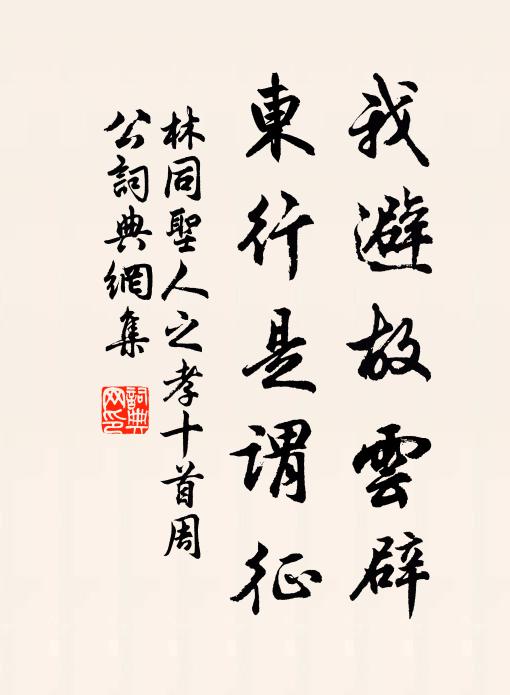 我避故雲辟
東行是謂征
林同聖人之孝十首周
公詞典網集
詞典
网印